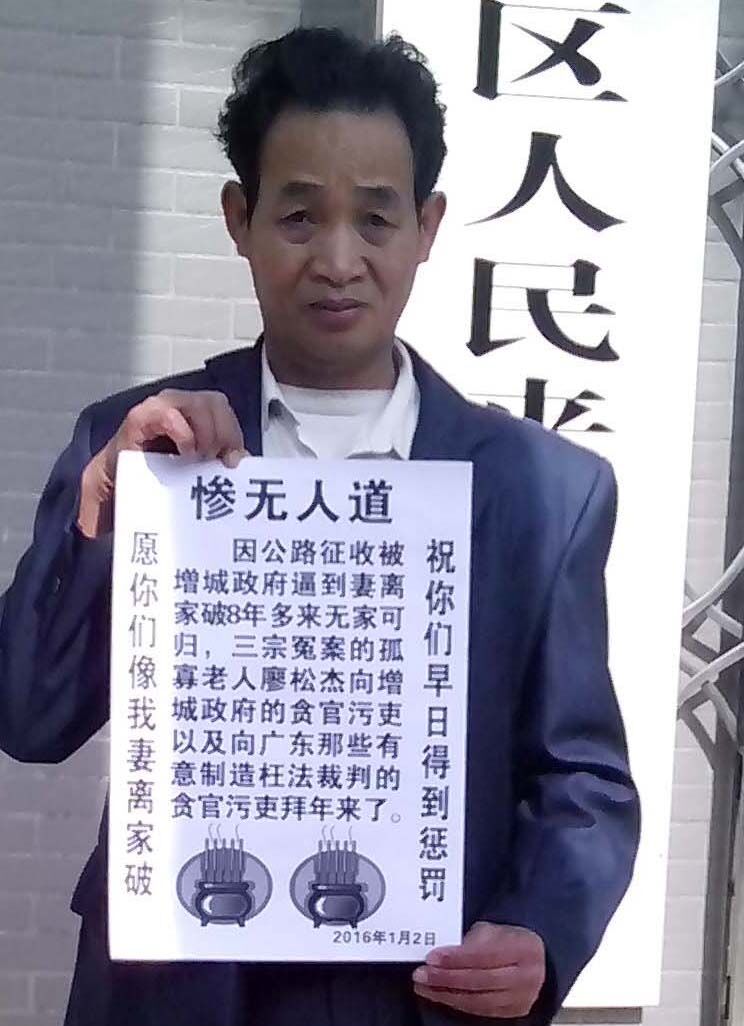 区人民
惨无人道
祝你们早日得到惩罚
因公路征收被
增城政府逼到妻离
家破8年多来无家可
归，三宗冤案的孤
寡老人廖松杰向增
城政府的贪官污吏
以及向广东那些有
意制造枉法裁判的
贪官污吏拜年来了。
愿你们像我妻离家破
2016年1月2日